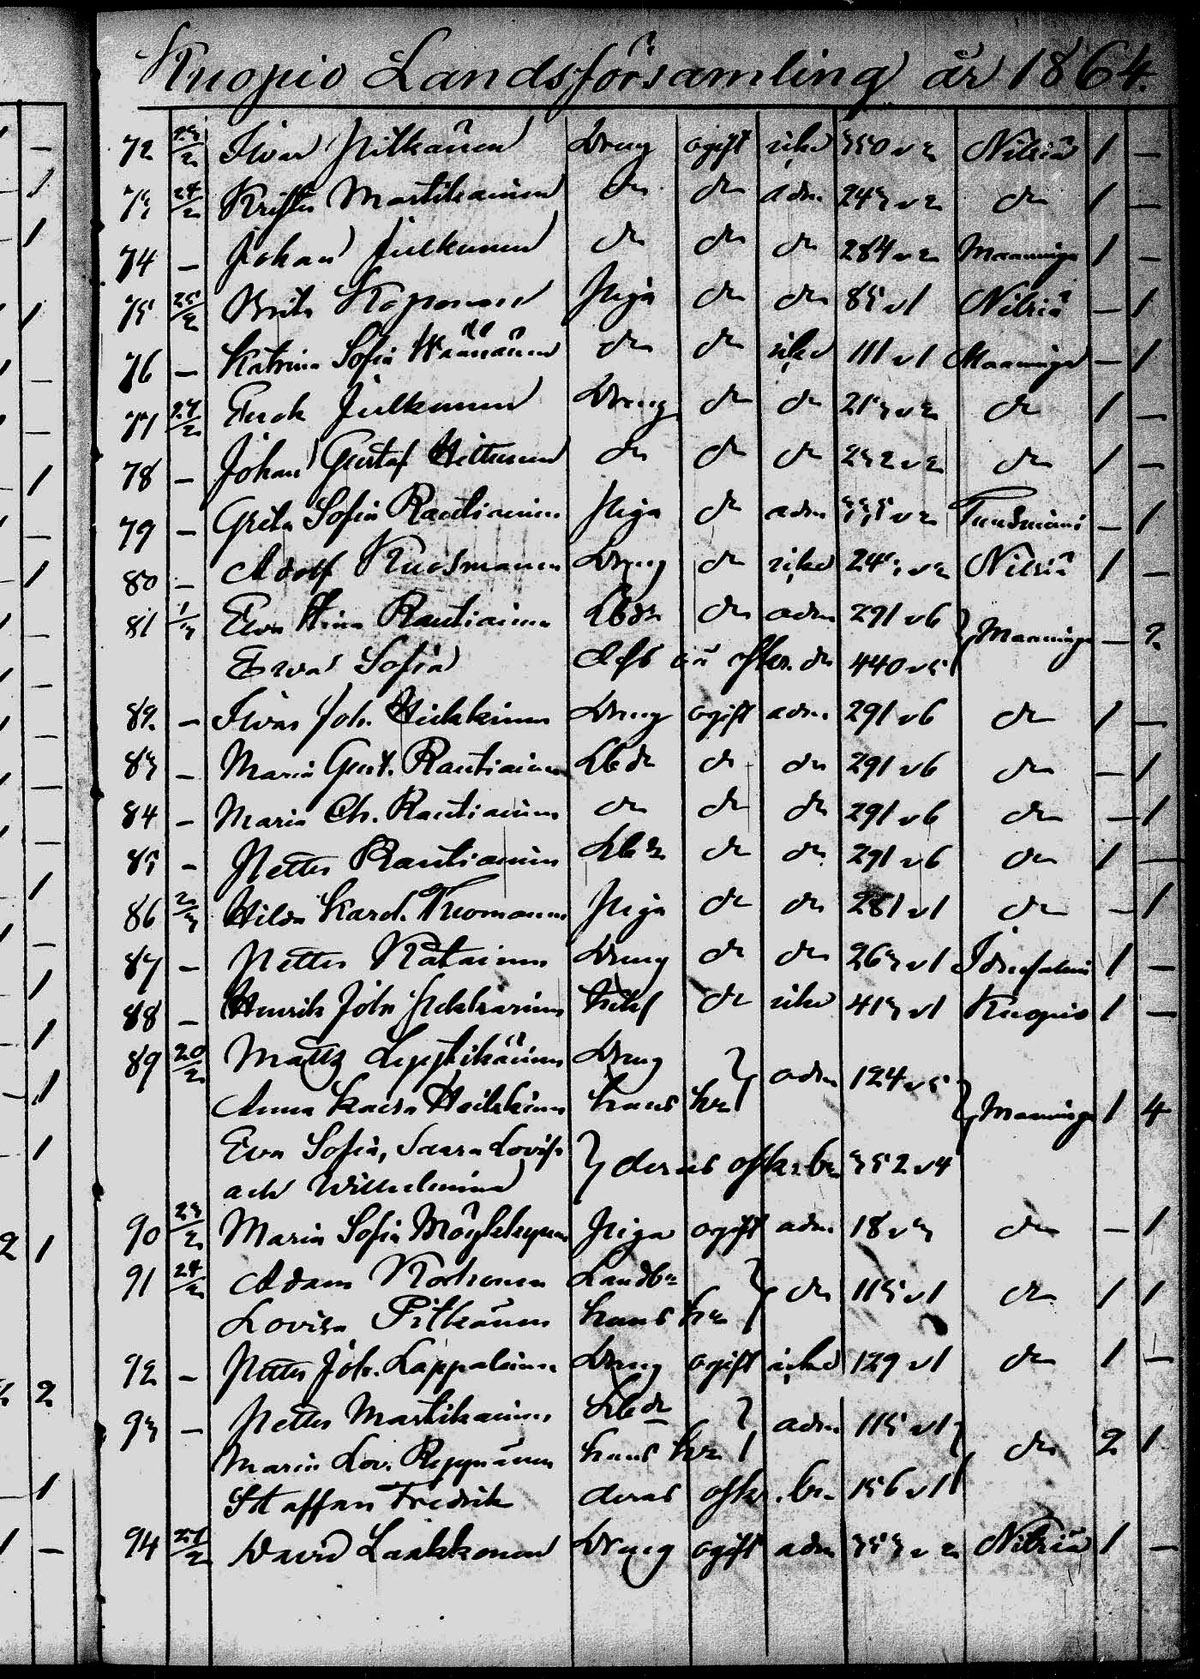 Kuopio Landsförsamling år 1864.
72 23/2 Iivar Pitkänen Dreng ogift icke 350 v 2 Nilsiä 1 —
73 24/2 Krister Martikainen do do adm. 243 v 2 do 1 —
74 — Johan Julkunen do do do 284 v 2 Maaninga 1 —
75 25/2 Brita Koponen Piga do do 85 v 1 Nilsiä — 1
76 — Katrina Sofia Väänänen do do icke 111 v 1 Maaninga — 1
77 27/2 Enok Julkunen Dreng do do 213 v 2 do 1 —
78 — Johan Gustaf do do do 232 v 2 do 1 —
79 — Greta Sofia Rautiainen Piga do adm 335 v 2 Tuusniemi — 1
80 — Adolf Kuosmanen Dreng do icke v 2 Nilsiä 1 —
81 1/3 Eva Stina Rautiainen do adm 291 v 6 } Maaninga — 2
Evas Sofia oä do 440 v 5
82. — Iivar Joh. Heikkinen Dreng ogift adm. 291 v 6 do 1 —
83 — Maria Gust. Rautiainen do do 291 v 6 do — 1
84 — Maria Ch. Rautiainen do do do 291 v 6 do — 1
85 — Petter Rautiainen do do 291 v 6 do 1 —
86 2/3 Hilda Karol. Tuomainen Piga do do 281 v 1 do — 1
87 — Petter Ratainen Dreng do do 263 v 1 Idensalmi 1 —
88 — Henrik Joh. Pekkarinen do icke 413 v 1 Kuopio 1 —
89 20/2 Matts Lyytikäinen Dreng } adm 124 v 5
Anna Kaisa Heikkinen hans hu } Maaninga 1 4
Eva Sofia, Saara Lovisa
och Wilhelmina } deras 352 v 4
90 23/2 Maria Sofia Möykkynen Piga ogift adm 18 v 3 do — 1
91 24/2 Adam Korhonen Landb. } do 115 v 1 do 1 1
Lovisa Pitkänen hans hu
92 — Petter Joh. Lappalainen Dreng ogift icke 129 v 1 do 1 —
93 — Petter Martikainen } adm 115 v 1 }
Maria Lov. Ryynänen hans hu do 2 1
Staffan Fredrik deras 156 v 1
94 27/2 David Laakkonen Dreng ogift adm 353 v 2 Nilsiä 1 —